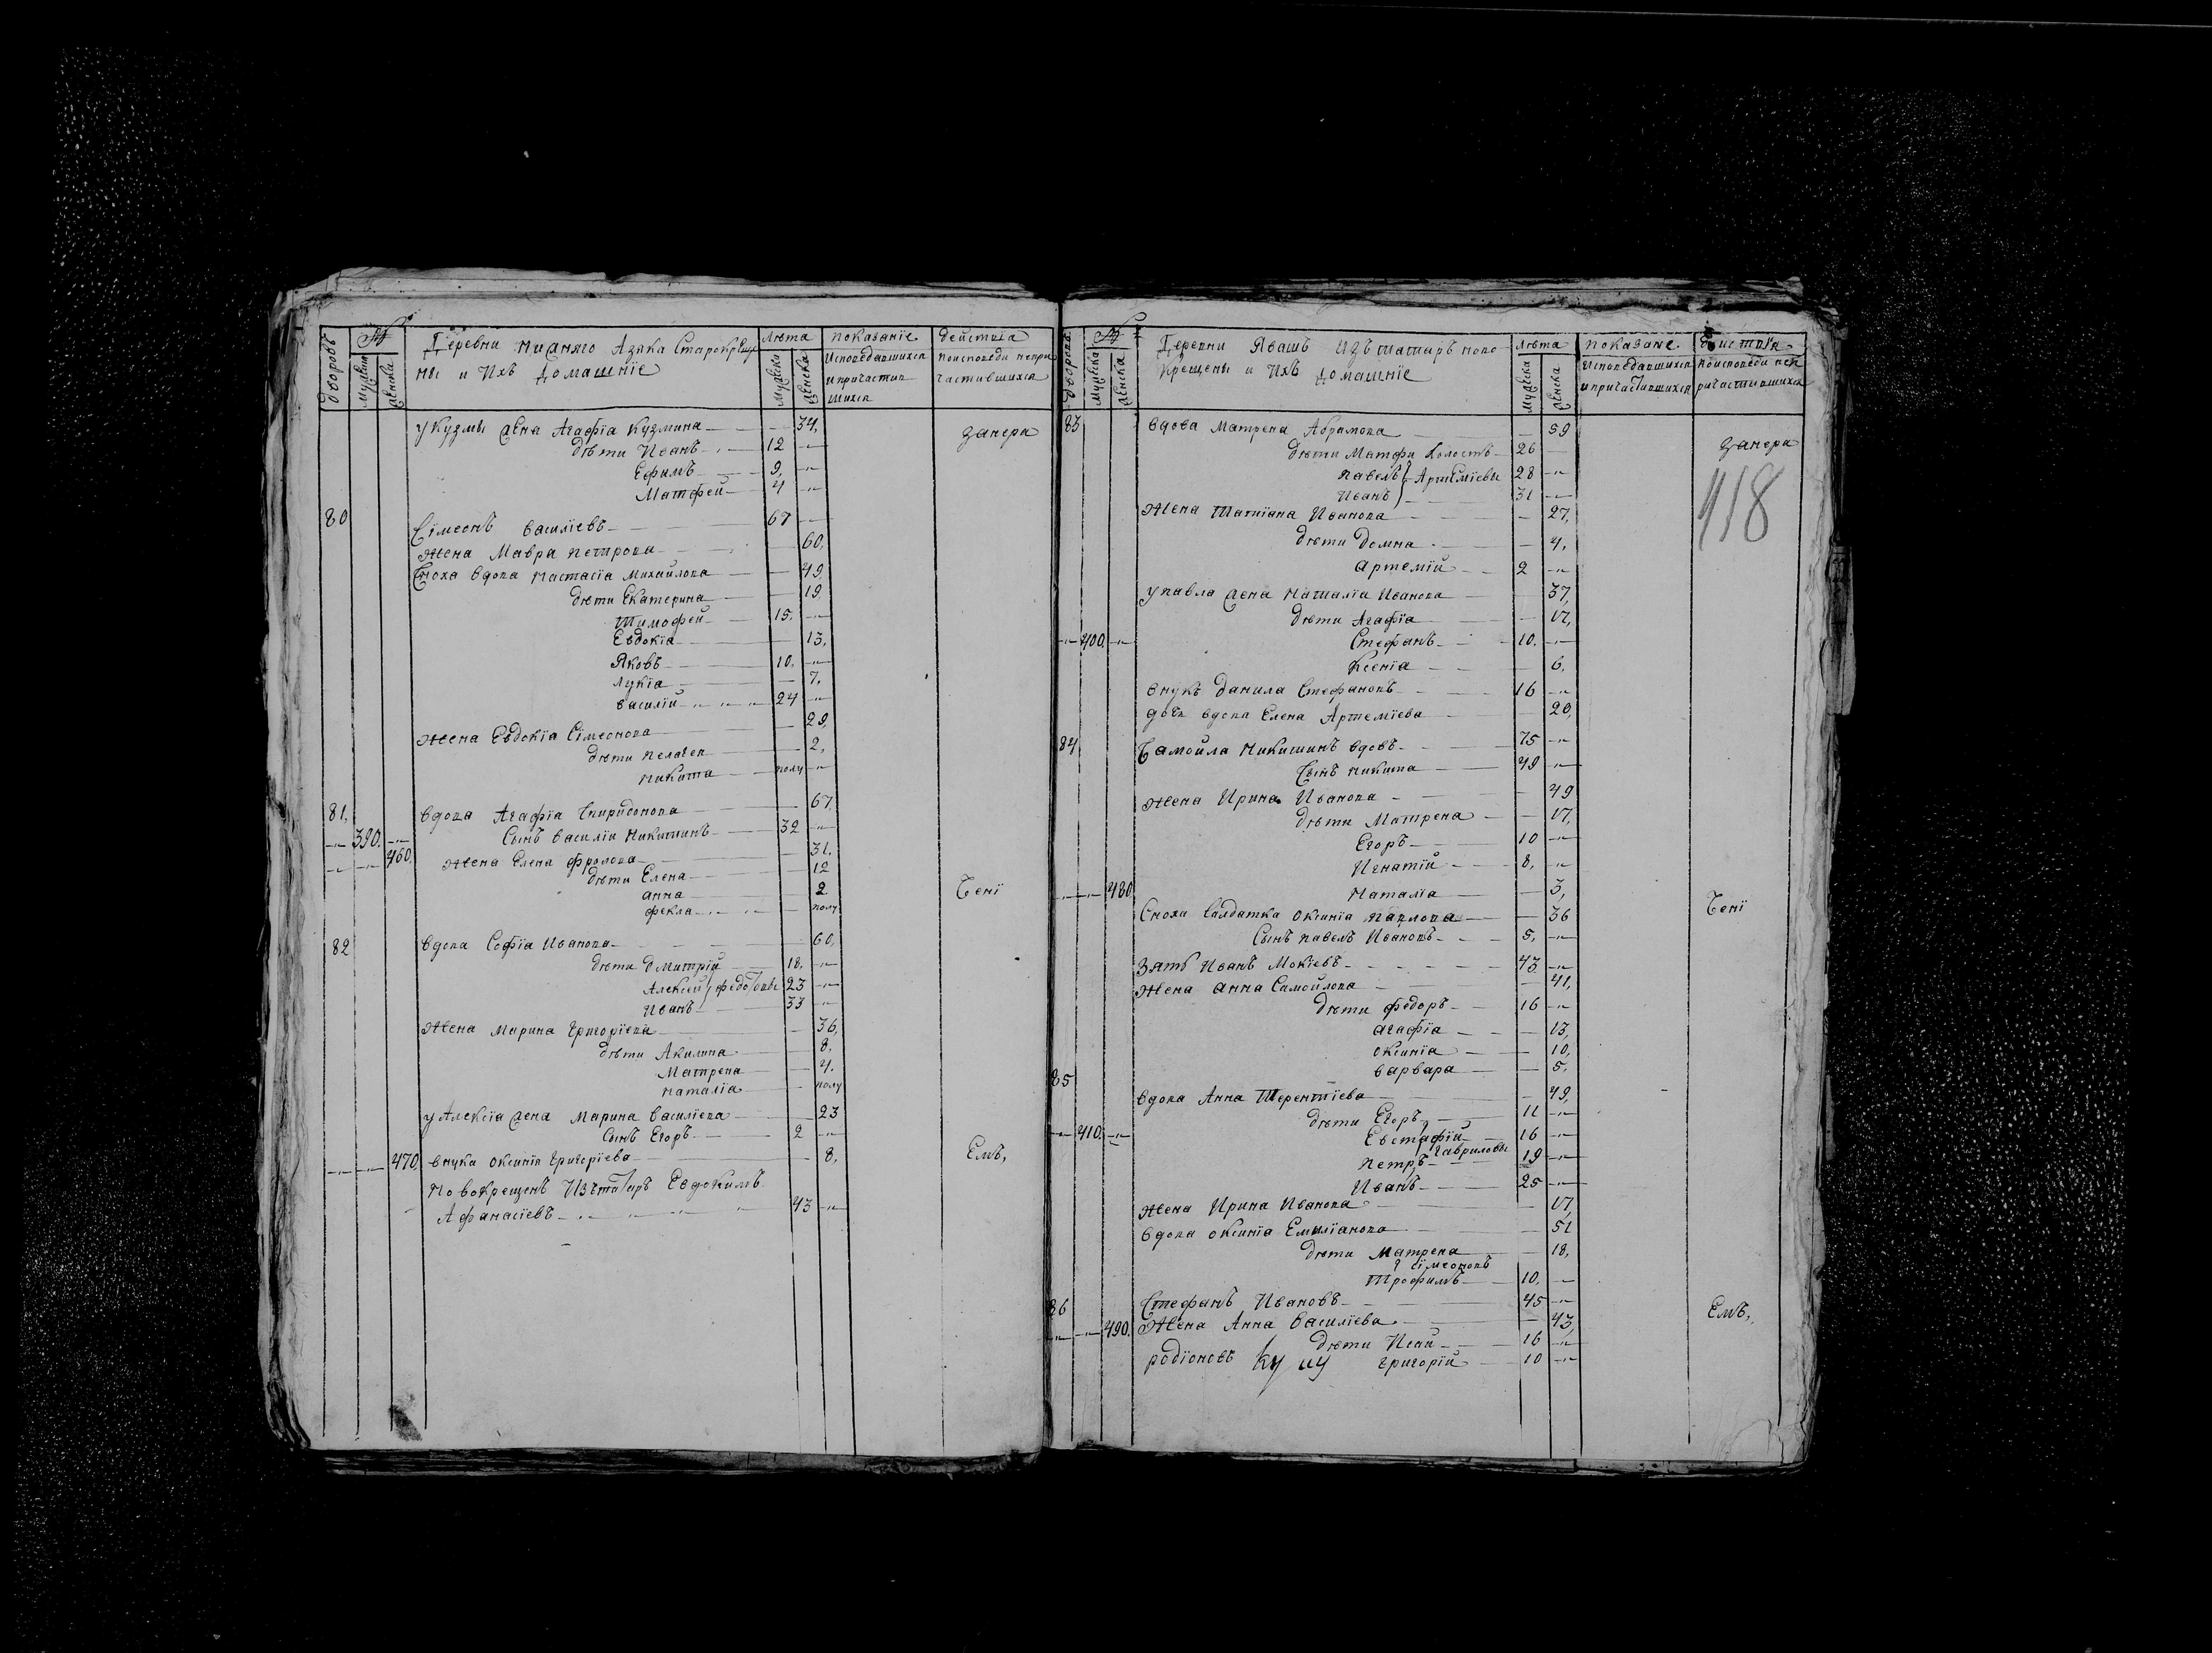 дворовъ № Деревни нижняго Азяка Старокрещ лѣта показанїе действїа
мужска женска ны и Ихъ домашнїе мужска женска Исповедавшихся поисповеди непри
и причастив частившихся
шихся
у Кузмы жена Агафїа Кузмина 34, занера
дѣти Иванъ 12
Ефимъ 9,
Матфей 4
80 Сїмеонъ Василїевъ 67
жена Мавра петрова 60,
Сноха вдова Настасїа Михайлова 49
дѣти Екатерина 19
Тимофей 15.
Евдокїа 13,
Яковъ 10,
Лукїа 7,
василїй 24
жена Евдокїа Сїмеонова 29
дѣти пелагея 2,
никита полу
81, вдова Агафїа Спиридонова 67,
390. Сынъ Василїй Никитинъ 32
460, жена Елена Фролова 31,
дѣти Елена 12
Анна 2 Сенї
фекла полу
82 вдова Софїа Иванова 60,
дѣти дмитрїй 18,
Алексей федотовы 23
Иванъ 33
жена Марина Григорїева 36,
дѣти Акилина 8,
Матрена 4,
наталїа полу
у Алексїа жена Марина Василїева 23
Сынъ Егоръ 2
470, внука Оксинїа Григорїева 8, Емъ,
Новокрещенъ Изъ татаръ Евдокимъ
Афанасїевъ 43
дворовъ № Деревни Явашъ Изъ татаръ ново лѣта показане действїя
мужска женска крещены и Ихъ домашнїе мужска женска Исповедавшихся поисповеди неп
и причастившихся ричастившихся
83 вдова Матрена Абрамова 59 занера
дѣти Матфи холостъ 26
павелъ Артемїевы 28
Иванъ 31
418
жена Татїана Иванова 27,
дѣти домна 4,
Артемїй 2
у павла жена Наталїа Иванова 37,
дѣти Агафїа 17,
400, Стефанъ 10,
Ксенїа 6,
внукъ данила Стефановъ 16
дочь вдова Елена Артемїева 20,
84 Самойла Никитинъ вдовъ 75
Сынъ никита 49
жена Ирина Иванова 49
дѣти Матрена 17,
Егоръ 10
Игнатїй 8,
480 Наталїа 3,
Сноха Салдатка Оксинїа павлова 36 Сенї
Сынъ павелъ Ивановъ 5,
Зять Иванъ Мокїевъ 43
жена Анна Самойлова 41,
дѣти федоръ 16
Агафїа 13,
Оксинїа 10,
варвара 5,
85
вдова Анна Терентїева 49,
дѣти Егоръ 11
410, Евстафїй 16
Гавриловы
петръ 19
Иванъ 25
жена Ирина Иванова 17,
вдова Оксинїа Емилїанова 51
дѣти Матрена 18,
сїмеоновъ
Трофимъ 10,
86 Стефанъ Ивановъ 45
490, жена Анна Василїева 43, Емъ,
дѣти Исай 16
родїоновъ Григорїй 10